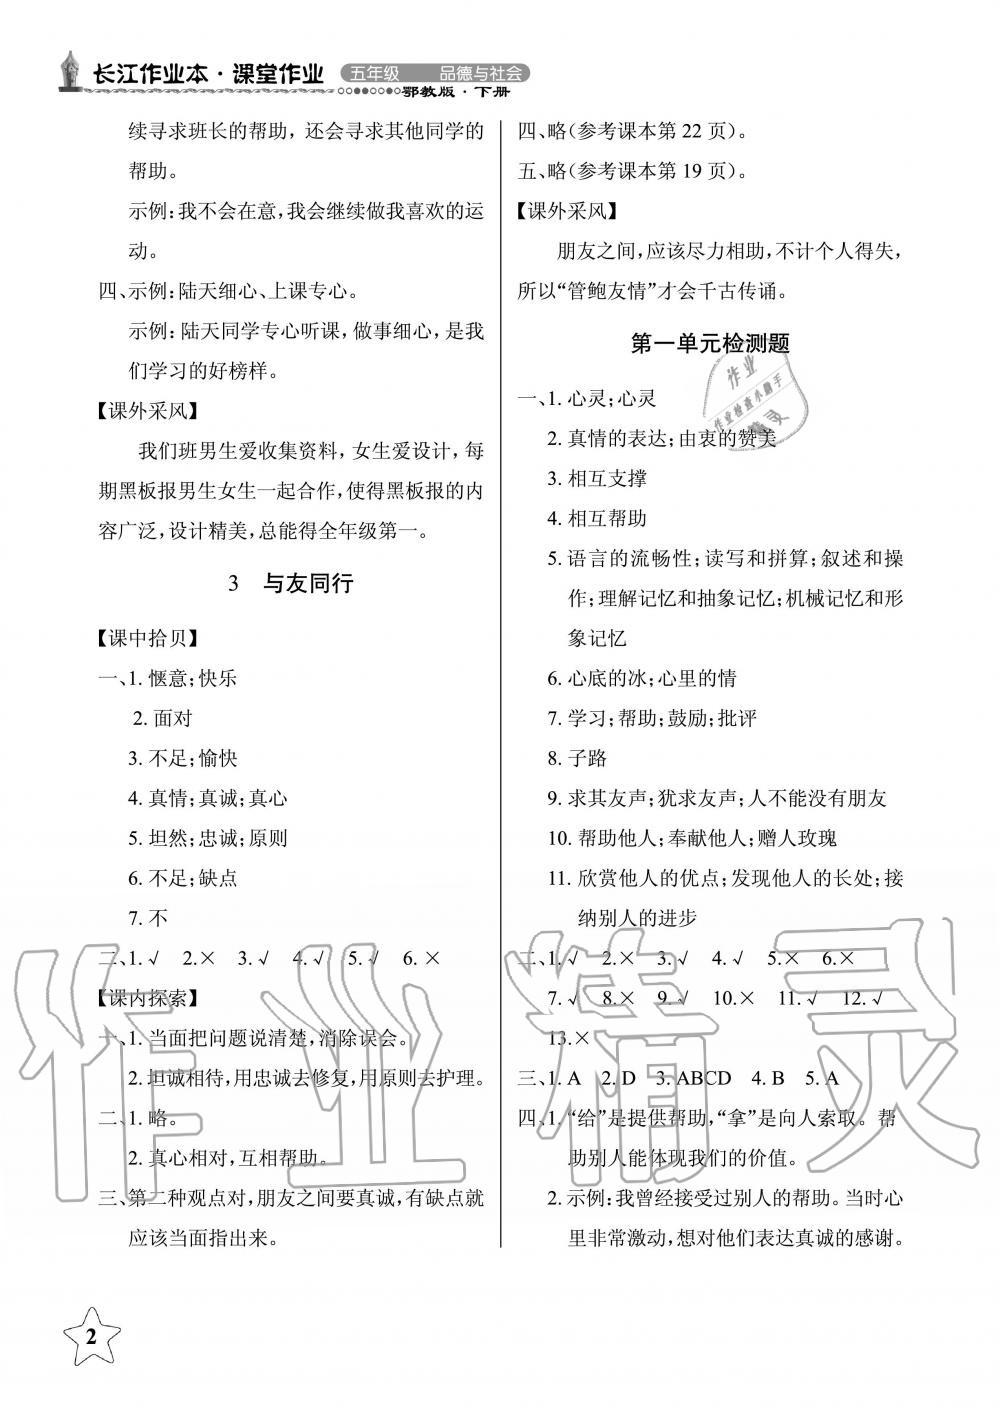 长江作业本·课堂作业 五年级 品德与社会
鄂教版·下册
续寻求班长的帮助，还会寻求其他同学的
帮助。
示例：我不会在意，我会继续做我喜欢的运
动。
四、示例：陆天细心、上课专心。
示例：陆天同学专心听课，做事细心，是我
们学习的好榜样。
【课外采风】
我们班男生爱收集资料，女生爱设计，每
期黑板报男生女生一起合作，使得黑板报的内
容广泛，设计精美，总能得全年级第一。
3 与友同行
【课中拾贝】
一、1. 惬意；快乐
2. 面对
3. 不足；愉快
4. 真情；真诚；真心
5. 坦然；忠诚；原则
6. 不足；缺点
7. 不
二、1.√ 2.× 3.√ 4.√ 5.√ 6.×
【课内探索】
一、1. 当面把问题说清楚，消除误会。
2. 坦诚相待，用忠诚去修复，用原则去护理。
二、1. 略。
2. 真心相对，互相帮助。
三、第二种观点对，朋友之间要真诚，有缺点就
应该当面指出来。
四、略（参考课本第 22 页）。
五、略（参考课本第 19 页）。
【课外采风】
朋友之间，应该尽力相助，不计个人得失，
所以“管鲍友情”才会千古传诵。
第一单元检测题
一、1. 心灵；心灵
2. 真情的表达；由衷的赞美
3. 相互支撑
4. 相互帮助
5. 语言的流畅性；读写和拼算；叙述和操
作；理解记忆和抽象记忆；机械记忆和形
象记忆
6. 心底的冰；心里的情
7. 学习；帮助；鼓励；批评
8. 子路
9. 求其友声；犹求友声；人不能没有朋友
10. 帮助他人；奉献他人；赠人玫瑰
11. 欣赏他人的优点；发现他人的长处；接
纳别人的进步
二、1.√ 2.× 3.√ 4.√ 5.× 6.×
7.√ 8.× 9.√ 10.× 11.√ 12.√
13.×
三、1. A 2. D 3. ABCD 4. B 5. A
四、1. “给”是提供帮助，“拿”是向人索取。帮
助别人能体现我们的价值。
2. 示例：我曾经接受过别人的帮助。当时心
里非常激动，想对他们表达真诚的感谢。
作业
作业检查小助手
精灵
作业精灵
2